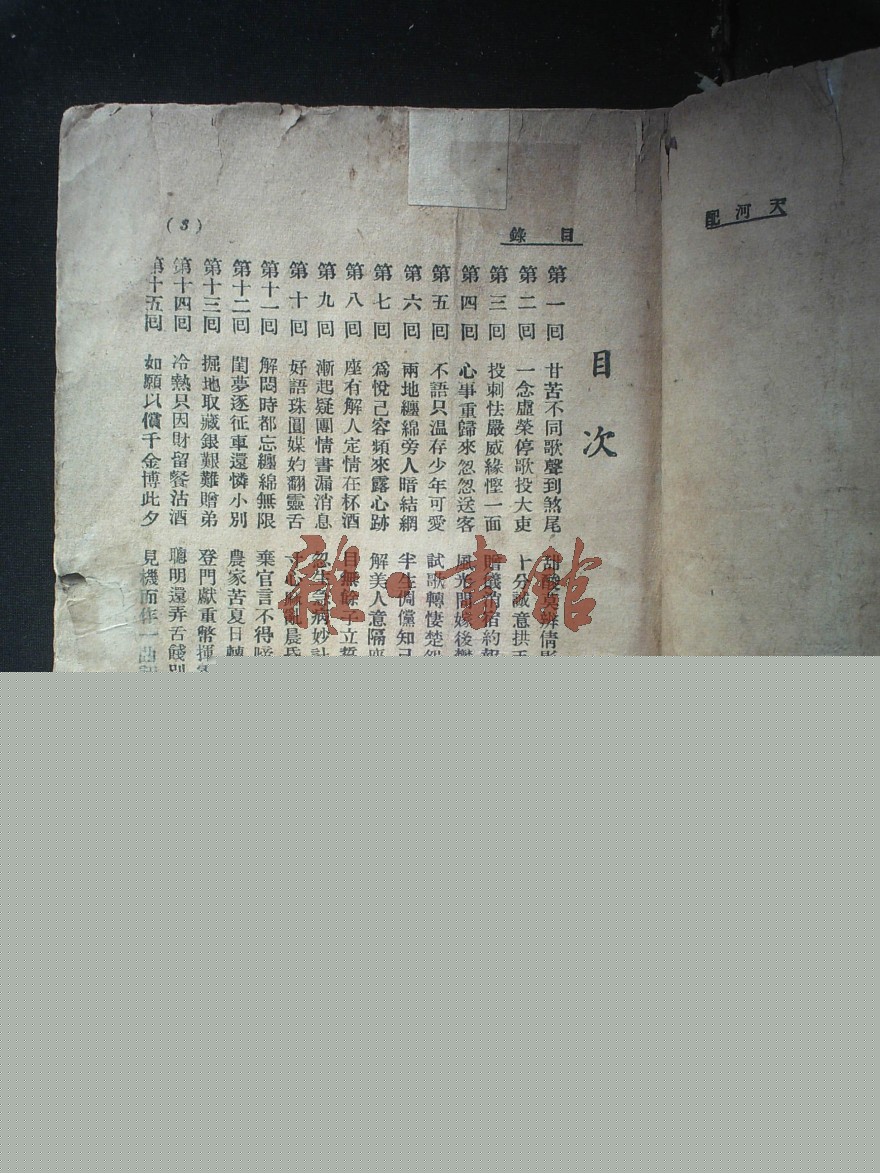 天河配
目錄
(3)
目次
第一回 甘苦不同歌聲到煞尾 甜酸莫辨倩
第二回 一念虛榮停歌投大吏 十分誠意拱
第三回 投刺怯嚴威緣慳一面 約報
第四回 心事重歸來忽忽送客 風光間嫁後
第五回 不語只溫存少年可愛 試歌轉悽楚
第六回 兩地纏綿旁人暗結網 半生倜儻知己
第七回 爲悅己容頻來露心跡 解美人意隔
第八回 座有解人定情在杯酒 目無餘子立誓
第九回 漸起疑團情書漏消息 忽生急病妙計
第十回 好語珠圓媒妁翻靈舌 寸心麻亂晨昏
第十一回 解悶時都忘纏綿無限 棄官言不得
第十二回 閨夢逐征車還憐小別 農家苦夏日轉
第十三回 掘地取藏銀艱難贈弟 登門獻重幣揮
第十四回 冷熱只因財留餐沽酒 聰明還弄舌餞別
第十五回 如願以償千金博此夕 見機而作一曲
雜·書館